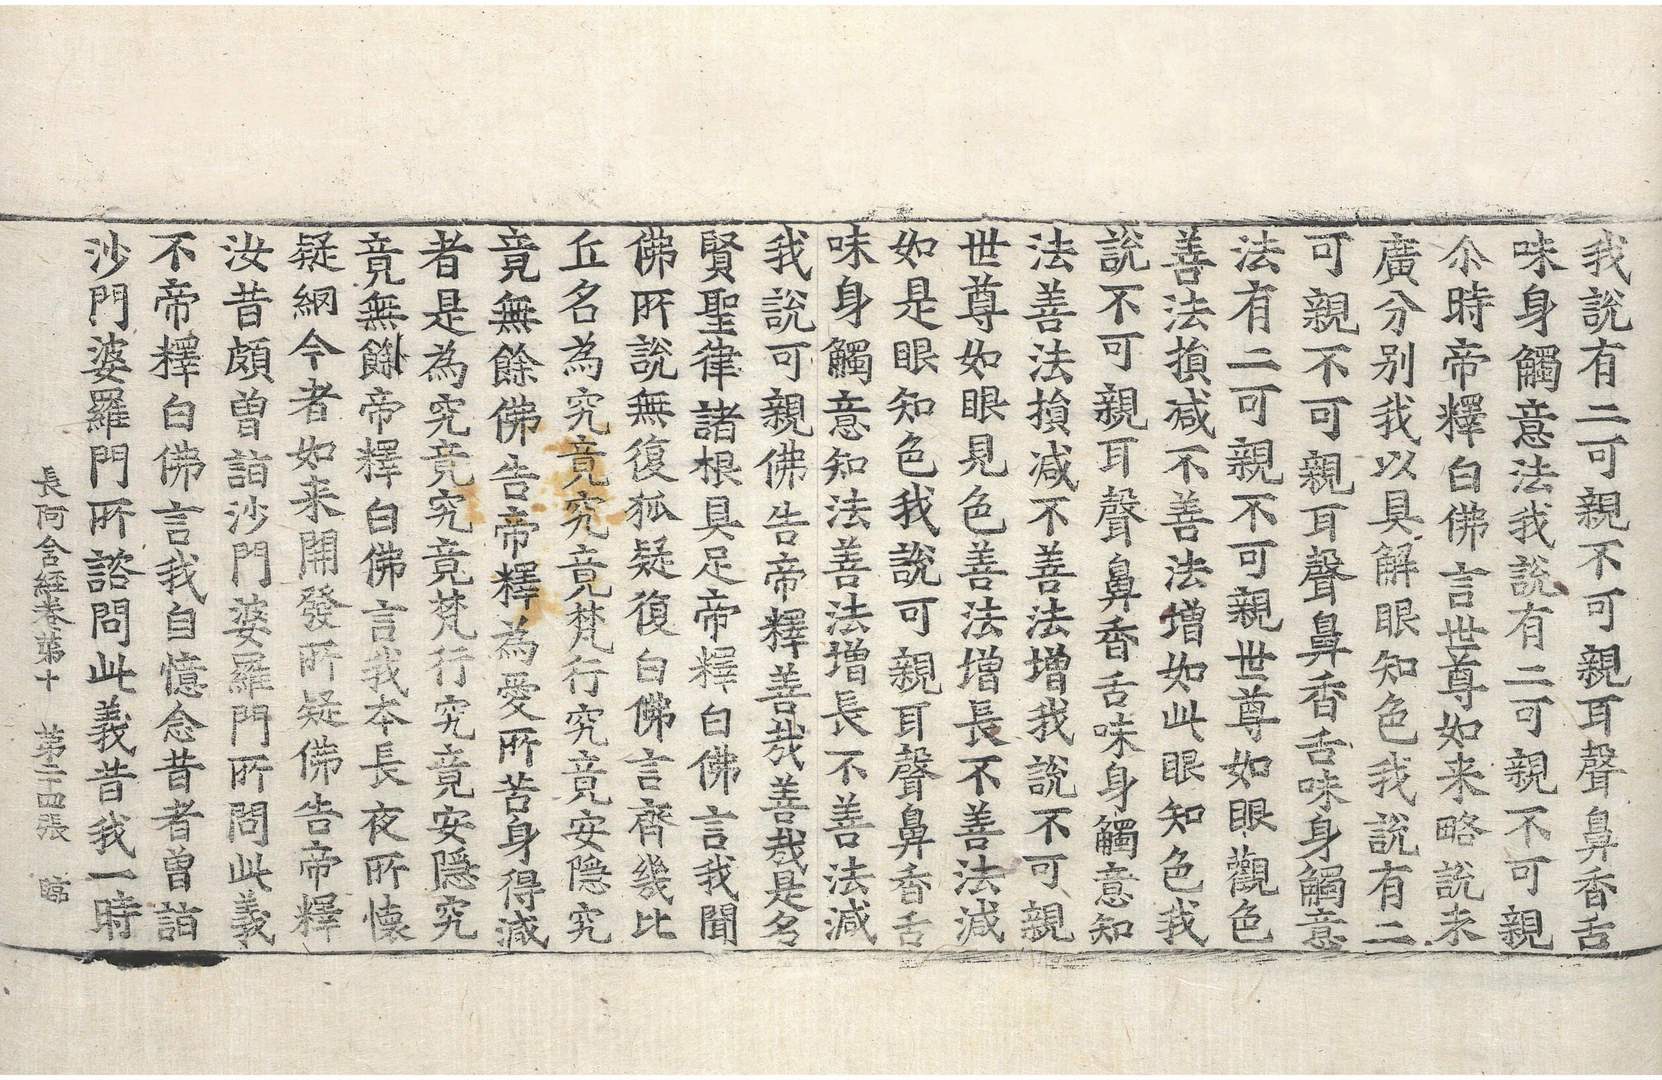 我說有二可親不可親耳聲鼻香舌
味身觸意法我說有二可親不可親
尒時帝釋白佛言世尊如来略說未
廣分别我以具解眼知色我說有二
可親不可親耳聲鼻香舌味身觸意
法有二可親不可親世尊如眼觀色
善法損减不善法增如此眼知色我
說不可親耳聲鼻香舌味身觸意知
法善法損减不善法增我說不可親
世尊如眼見色善法增長不善法减
如是眼知色我說可親耳聲鼻香舌
味身觸意知法善法增長不善法减
我說可親佛告帝釋善哉善哉是名
賢聖律諸根具足帝釋白佛言我聞
佛所說無復狐疑復白佛言齊幾比
丘名為究竟究竟梵行究竟安隱究
竟無餘佛告帝釋為愛所苦身得滅
者是為究竟究竟梵行究竟安隱究
竟無餘帝釋白佛言我本長夜所懷
疑網今者如来開發所疑佛告帝釋
汝昔頗曽詣沙門婆羅門所問此義
不帝釋白佛言我自憶念昔者曽詣
沙門婆羅門所諮問此義昔我一時
長阿含經卷第十 第二十四張